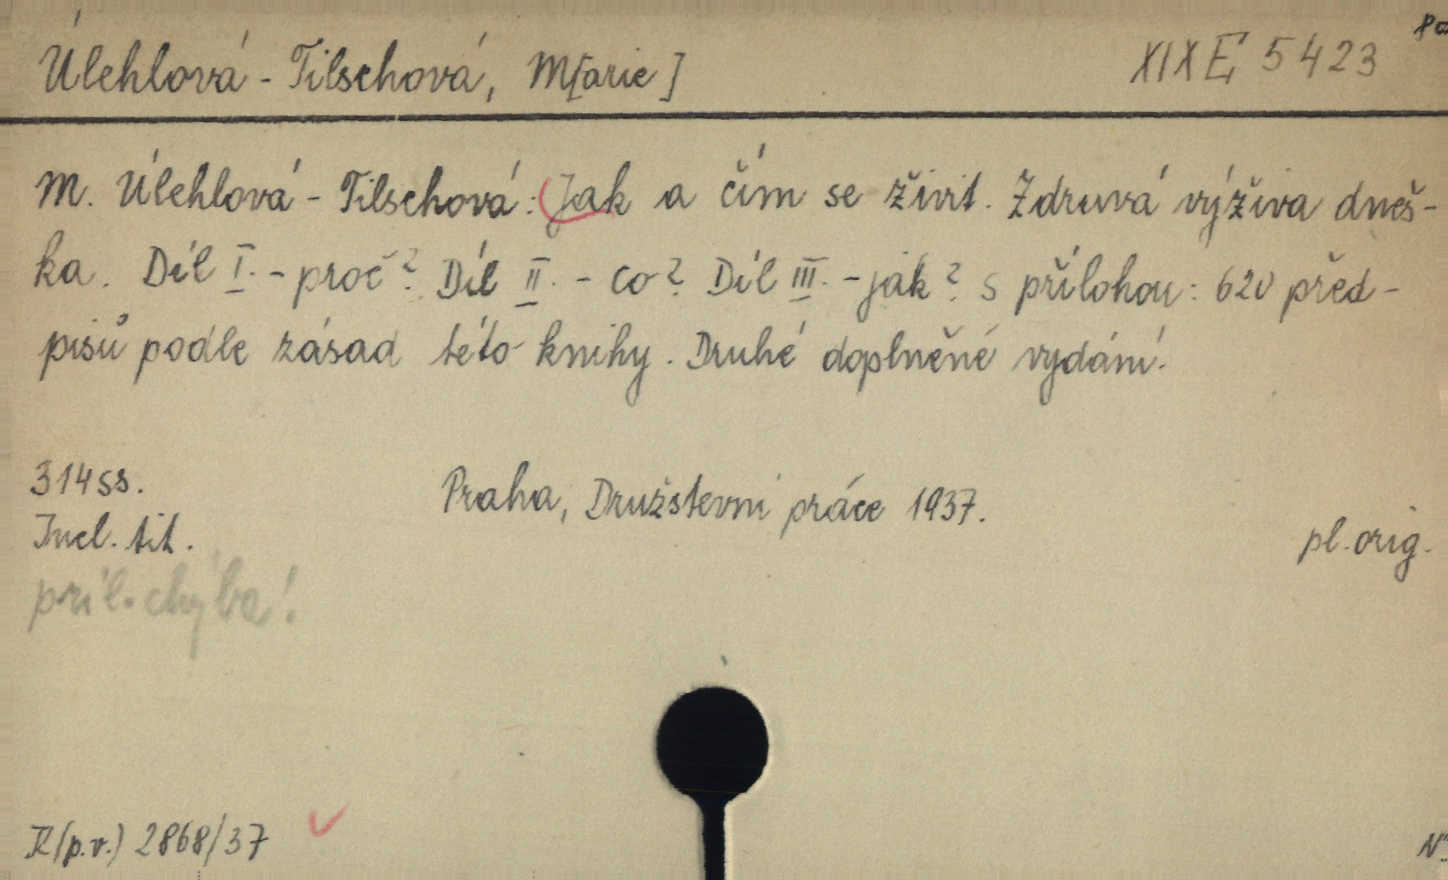 Úlehlová-Tilschová, M[arie] XIX E 5423
M. Úlehlová-Tilschová: Jak a čím se živit. Zdravá výživa dneš-
ka. Díl I. - proč? Díl II. - co? Díl III. - jak? S přílohou: 620 před-
pisů podle zásad této knihy. Druhé doplněné vydání.
314 ss. Praha, Družstevní práce 1937.
Incl. tit. pl. orig.
příl. chýba!
(p.v.) 2868/37